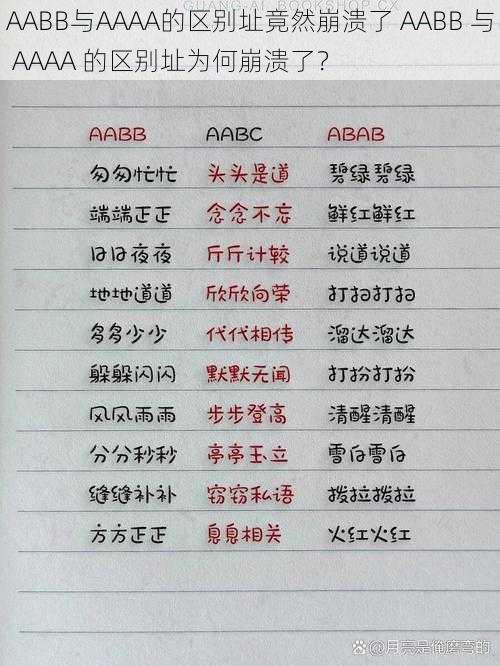 AABB与AAAA的区别址竟然崩溃了 AABB 与
AAAA 的区别址为何崩溃了?
GUANG.AI BOOKSHOP.CO
AABB AABC ABAB
匆匆忙忙 头头是道 碧绿碧绿
端端正正 念念不忘 鲜红鲜红
日日夜夜 斤斤计较 说道说道
地地道道 欣欣向荣 打扫打扫
多多少少 代代相传 溜达溜达
躲躲闪闪 默默无闻 打扮打扮
风风雨雨 步步登高 清醒清醒
分分秒秒 亭亭玉立 雪白雪白
缝缝补补 窃窃私语 拨拉拨拉
方方正正 息息相关 火红火红
@月亮是俺磨弯的